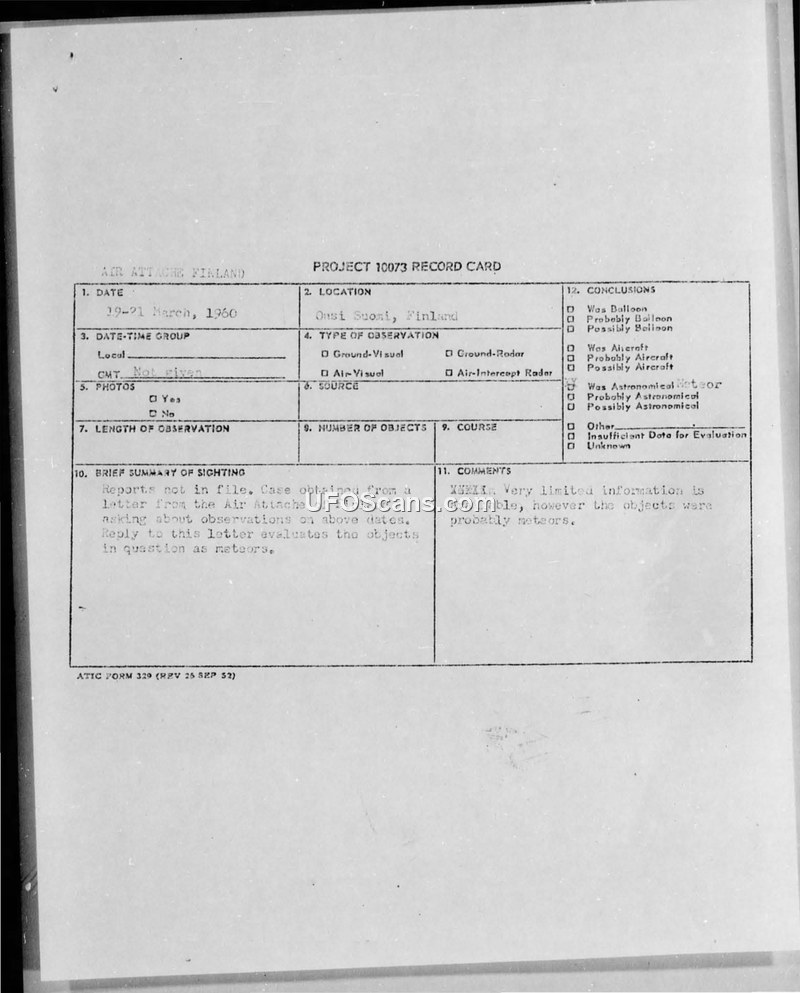 AIR ATTACHE FINLAND
PROJECT 10073 RECORD CARD
1. DATE
19-21 March, 1960
2. LOCATION
Uusi Suomi, Finland
12. CONCLUSIONS
□ Was Balloon
□ Probably Balloon
□ Possibly Balloon
□ Was Aircraft
□ Probably Aircraft
□ Possibly Aircraft
Was Astronomical Meteor
□ Probably Astronomical
□ Possibly Astronomical
□ Other
□ Insufficient Data for Evaluation
□ Unknown
3. DATE-TIME GROUP
Local
GMT Not given
4. TYPE OF OBSERVATION
□ Ground-Visual □ Ground-Radar
□ Air-Visual □ Air-Intercept Radar
5. PHOTOS
□ Yes
□ No
6. SOURCE
7. LENGTH OF OBSERVATION
8. NUMBER OF OBJECTS
9. COURSE
10. BRIEF SUMMARY OF SIGHTING
Reports not in file. Case obtained from a
letter from the Air Attache
asking about observations on above dates.
Reply to this letter evaluates the objects
in question as meteors.
11. COMMENTS
Very limited information is
however the objects were
probably meteors.
UFOScans.com
ATIC FORM 329 (REV 26 SEP 52)